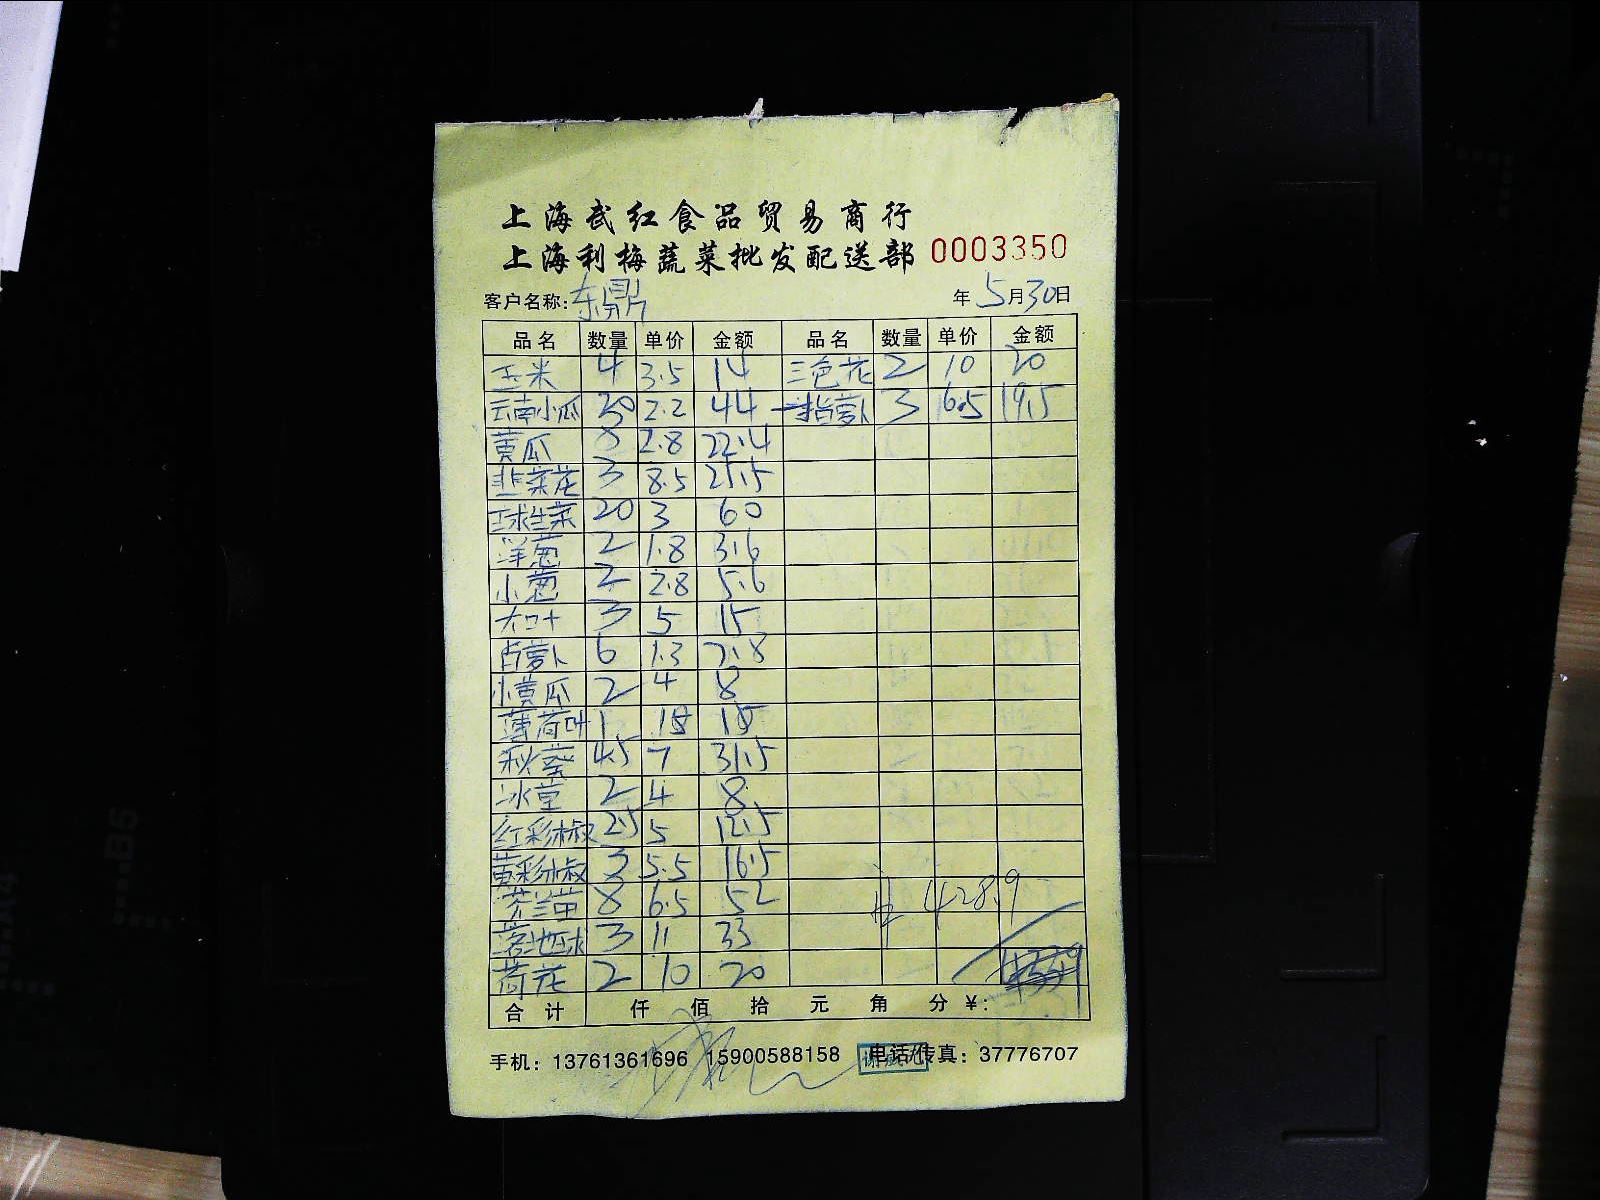 上海武红食品贸易商行
上海利梅蔬菜批发配送部 0003350
客户名称: 东鼎 年 5月30日
品名 数量 单价 金额 品名 数量 单价 金额
玉米 4 3.5 14 三色花 2 10 20
云南小瓜 20 2.2 44 手指萝卜 3 6.5 19.5
黄瓜 8 2.8 22.4
韭菜花 3 8.5 25.5
球生菜 20 3 60
洋葱 2 1.8 3.6
小葱 2 2.8 5.6
大口十 3 5 15
白萝卜 6 1.3 7.8
小黄瓜 2 4 8
薄荷叶 1 15 15
秋葵 4.5 7 31.5
冰草 2 4 8
红彩椒 2.5 5 12.5
黄彩椒 3 5.5 16.5
芥兰苗 8 6.5 52
落地球 3 11 33
荷花 2 10 20
428.9
合计 仟 佰 拾 元 角 分 ¥:
手机: 13761361696 15900588158 电话/传真: 37776707